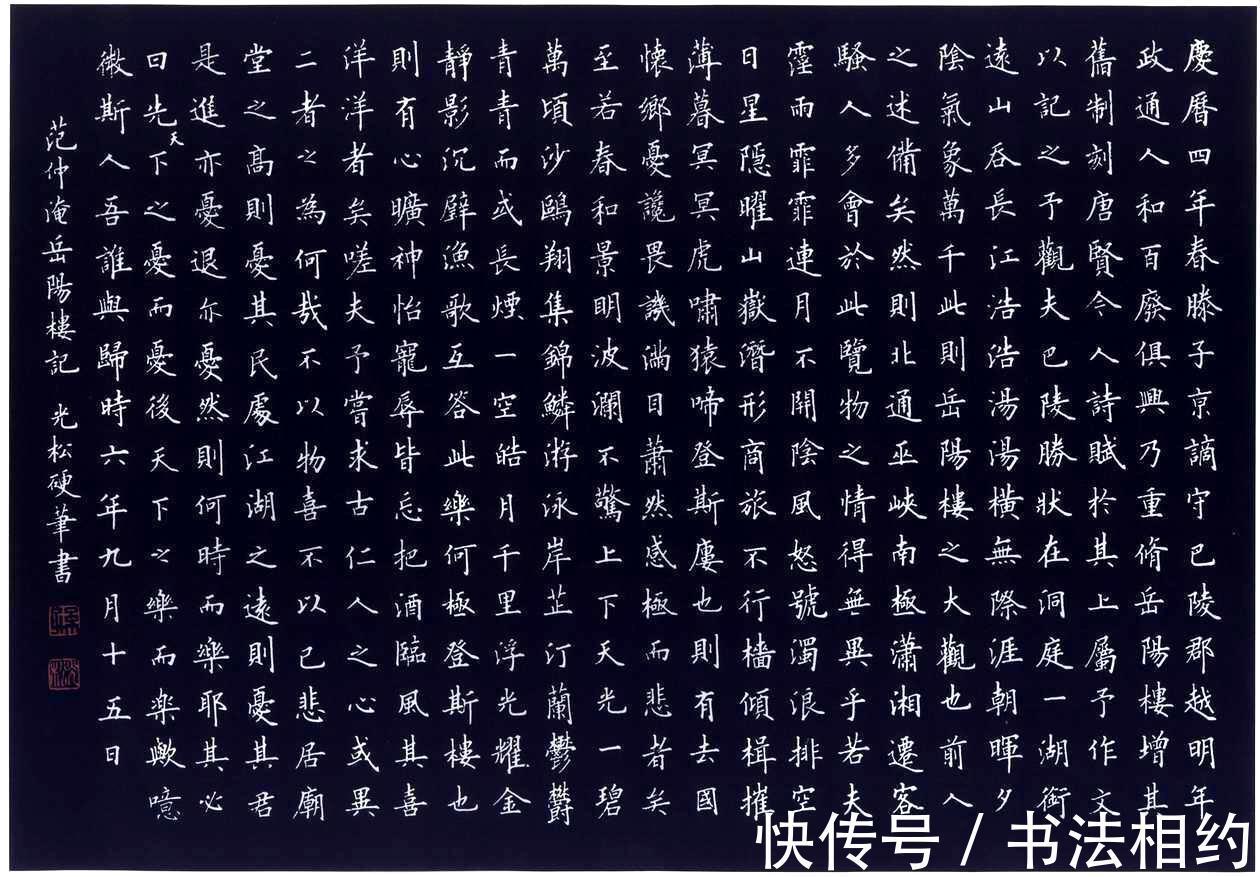 慶曆四年春滕子京謫守巴陵郡越明年
政通人和百廢俱興乃重脩岳陽樓增其
舊制刻唐賢今人詩賦於其上屬予作文
以記之予觀夫巴陵勝狀在洞庭一湖銜
遠山吞長江浩浩湯湯橫無際涯朝暉夕
陰氣象萬千此則岳陽樓之大觀也前人
之述備矣然則北通巫峽南極瀟湘遷客
騷人多會於此覽物之情得無異乎若夫
霪雨霏霏連月不開陰風怒號濁浪排空
日星隱曜山嶽潛形商旅不行檣傾楫摧
薄暮冥冥虎嘯猿啼登斯廔也則有去國
懷鄉憂讒畏譏滿目蕭然感極而悲者矣
至若春和景明波瀾不驚上下天光一碧
萬頃沙鷗翔集錦鱗游泳岸芷汀蘭鬱欝
青青而或長煙一空皓月千里浮光耀金
靜影沉璧漁歌互答此樂何極登斯樓也
則有心曠神怡寵辱皆忘把酒臨風其喜
洋洋者矣嗟夫予嘗求古仁人之心或異
二者之為何哉不以物喜不以己悲居廟
堂之高則憂其民處江湖之遠則憂其君
是進亦憂退亦憂然則何時而樂耶其必
曰先天下之憂而憂後天下之樂而楽歟噫
微斯人吾誰與歸時六年九月十五日
范仲淹岳陽樓記 光松硬筆書
快传号/书法相约